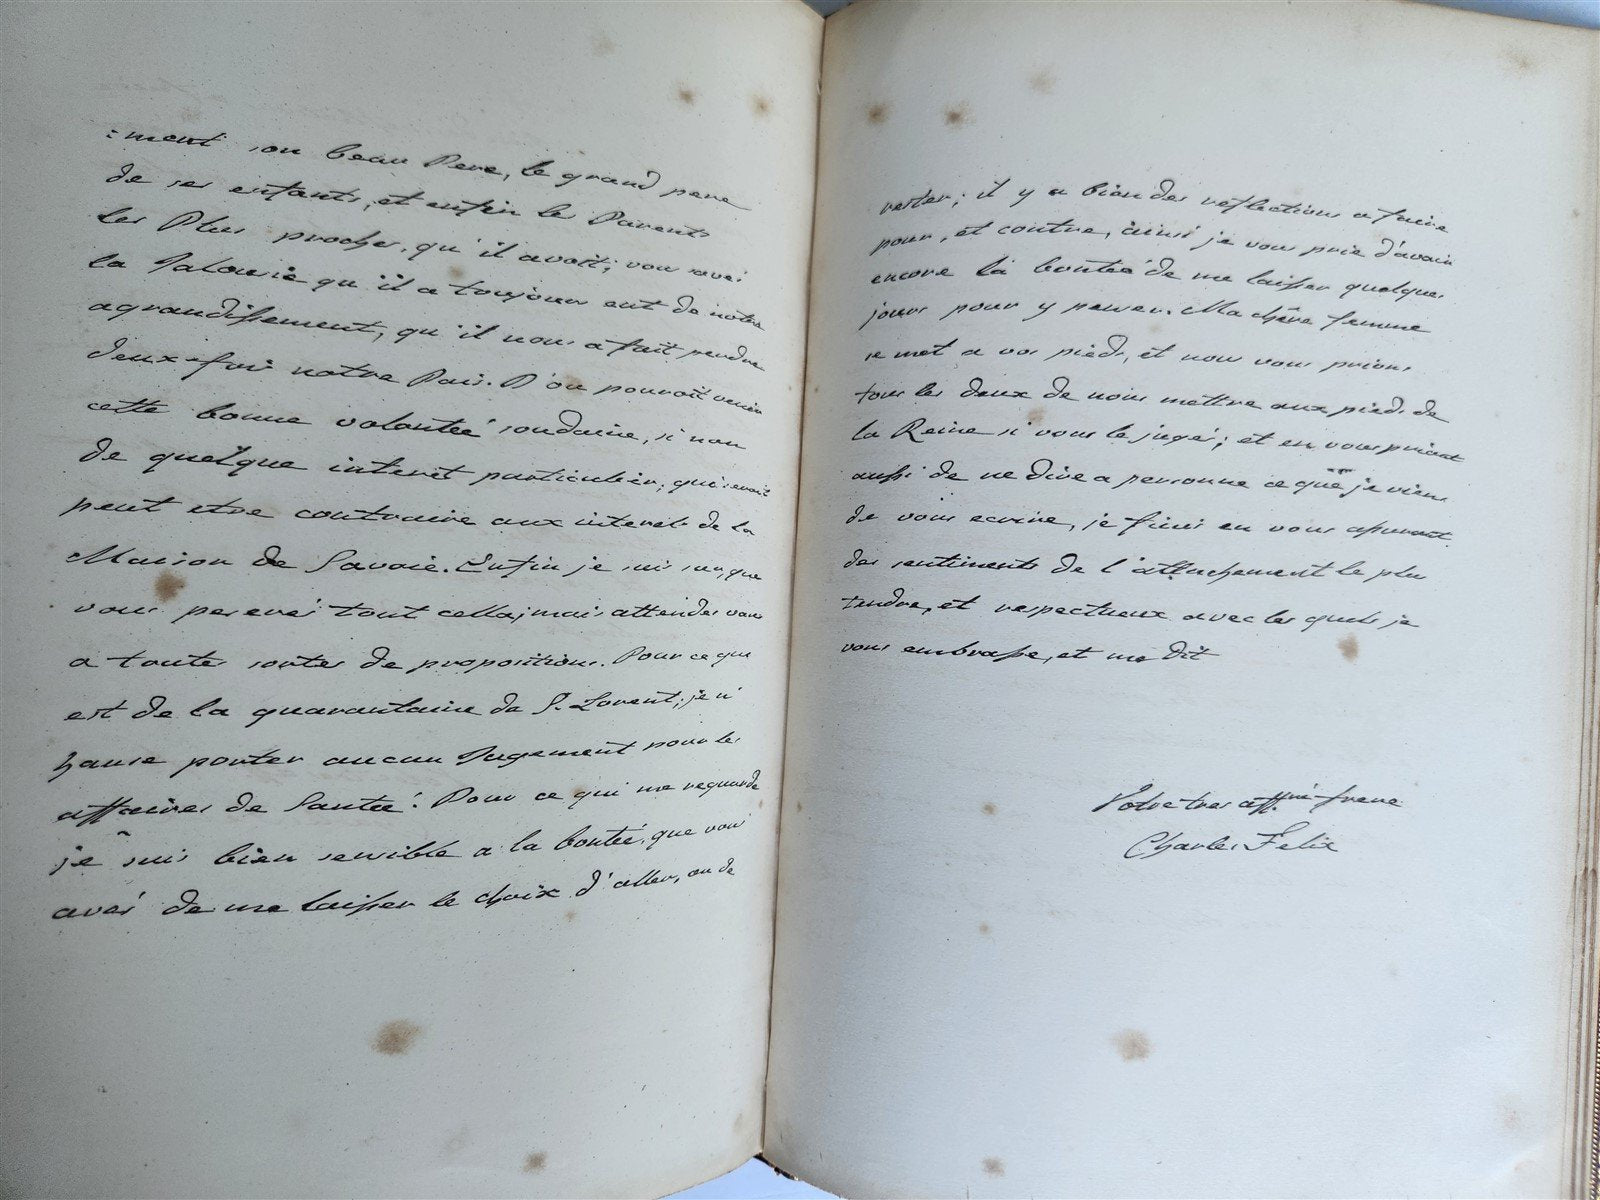 =ment son beau Pere, le grand pere
de ses enfants, et enfin les Parents
les Plus proches, qu'il avoit; vous savés
la Jalousie qu'il a toujours eut de notre
agrandissement, qu'il nous a fait perdre
deux fois notre Pais. D'ou pouroit venir
cette bonne volonteé soudaine, si non
de quelque interêt particulier, qui seroit
peut etre contraire aux interets de la
Maison de Savoie. Enfin je suis sur, que
vous peserés tout cella, mais attendes vous
a toutes sortes de propositions. Pour ce que
est de la quarantaine de S. Lorent, je n'
hause porter aucun Jugement pour les
affaires de Santeé. Pour ce qui me reguarde
je suis bien sensible a la bonteé, que vous
avés de me laisser le choix d'aller, ou de
rester; il y a bien des reflections a faire
pour, et contre, ainsi je vous prie d'avoir
encore la bonteé de me laisser quelques
jours pour y penser. Ma chêre femme
se met a vos pieds, et nous vous prions
tous les deux de nous mettre aux pieds de
la Reine si vous le jugés; et en vous priant
aussi de ne dire a personne ce que je viens
de vous ecrire, je finis en vous assurant
des sentiments de l'attachement le plus
tendre, et respectueux avec les quels je
vous embrasse, et me dit
Votre tres aff.né frere
Charles Felix